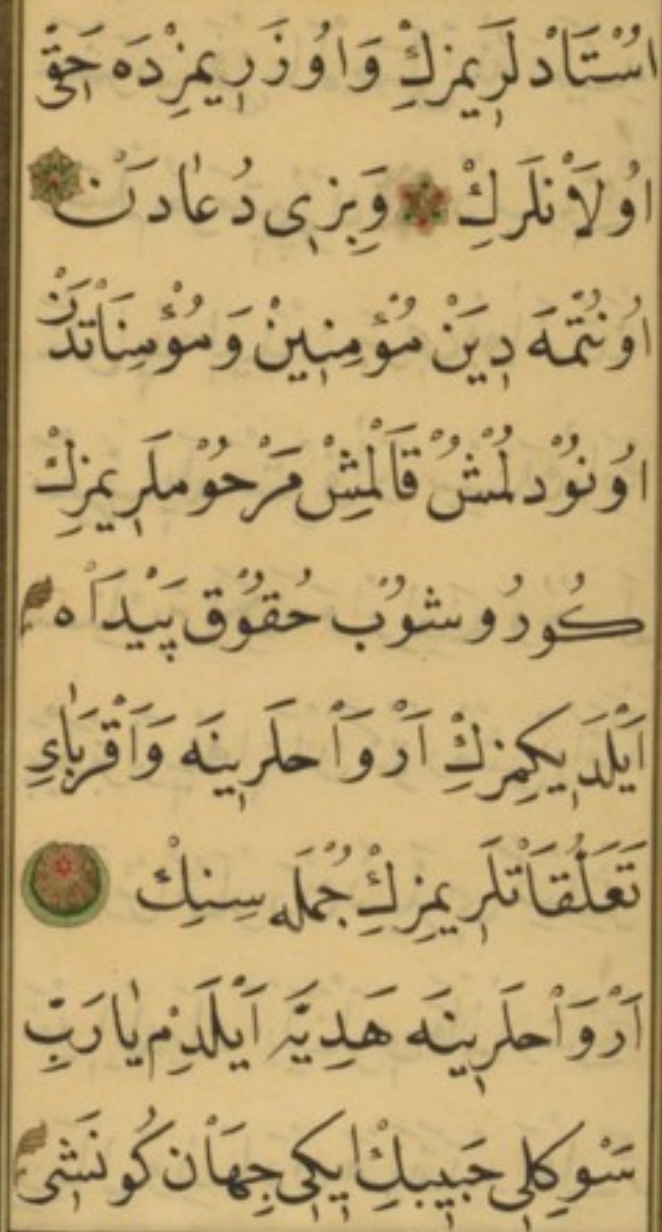 اُسْتَاْدلَرِيمِزِكْ وَاُوزَرِيمِزْدَه حَقّٖ
اُولَاْنلَرِكْ وَبِزِى دُعَادَنْ
اُونُتْمَه دِيَنْ مُؤْمِنِينْ وَمُؤْمِنَاتْدَنْ
اُونُوْدلْمُشْ قَالْمِشْ مَرْحُوْملَرِيمِزِكْ
كُورُوشُوْب حُقُوْق پَيْدَاْ ه
اَيْلَدِيكِمِزِكْ اَرْوَاْحلَرِينَه وَاَقْرَبَايِ
تَعَلُّقَاتْلَرِيمِزِكْ جُمْلَه سِنِكْ
اَرْوَاْحلَرِينَه هَدِيَّه اَيْلَدِمْ يَارَبِّ
سَوكِلِى حَبِيبِكْ اِيكِى جِهَاْن كُونَشِى